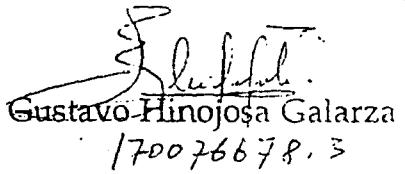 Gustavo Hinojosa Galarza
170076678.3